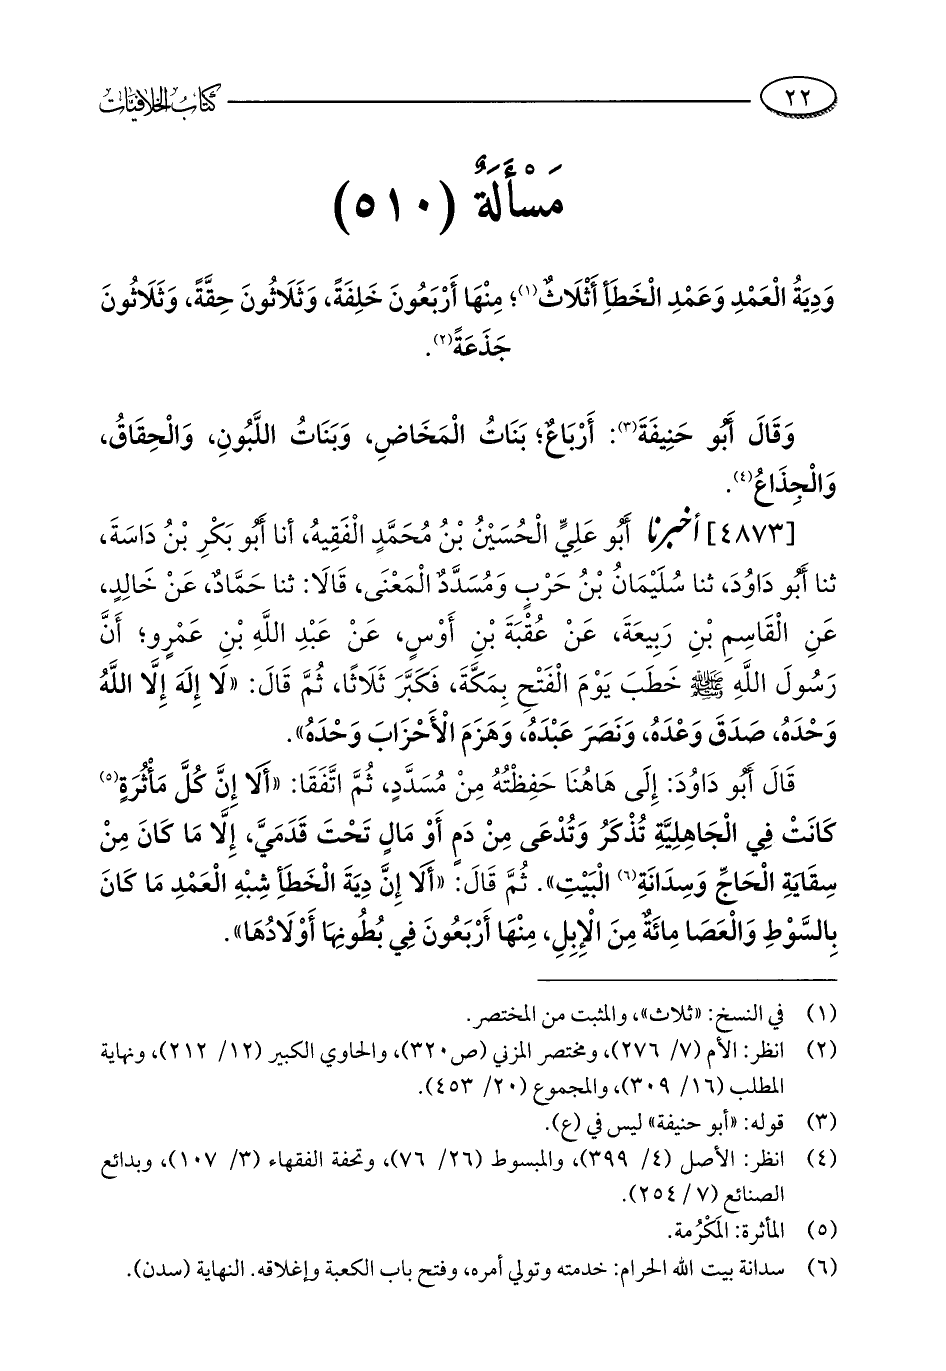 ٢٢
كتاب الخلافيات
مَسْأَلَةٌ (٥١٠)
وَدِيَةُ الْعَمْدِ وَعَمْدِ الْخَطَأِ أَثْلَاثٌ(١)؛ مِنْهَا أَرْبَعُونَ خَلِفَةً، وَثَلَاثُونَ حِقَّةً، وَثَلَاثُونَ
جَذَعَةً(٢).
وَقَالَ أَبُو حَنِيفَةَ(٣): أَرْبَاعٌ؛ بَنَاتُ الْمَخَاضِ، وَبَنَاتُ اللَّبُونِ، وَالْحِقَاقُ،
وَالْجِذَاعُ(٤).
[٤٨٧٣] أخبرنا أَبُو عَلِيٍّ الْحُسَيْنُ بْنُ مُحَمَّدٍ الْفَقِيهُ، أنا أَبُو بَكْرِ بْنُ دَاسَةَ،
ثنا أَبُو دَاوُدَ، ثنا سُلَيْمَانُ بْنُ حَرْبٍ وَمُسَدَّدٌ الْمَعْنَى، قَالَا: ثنا حَمَّادٌ، عَنْ خَالِدٍ،
عَنِ الْقَاسِمِ بْنِ رَبِيعَةَ، عَنْ عُقْبَةَ بْنِ أَوْسٍ، عَنْ عَبْدِ اللَّهِ بْنِ عَمْرٍو؛ أَنَّ
رَسُولَ اللَّهِ ﷺ خَطَبَ يَوْمَ الْفَتْحِ بِمَكَّةَ، فَكَبَّرَ ثَلَاثًا، ثُمَّ قَالَ: «لَا إِلَهَ إِلَّا اللَّهُ
وَحْدَهُ، صَدَقَ وَعْدَهُ، وَنَصَرَ عَبْدَهُ، وَهَزَمَ الْأَحْزَابَ وَحْدَهُ».
قَالَ أَبُو دَاوُدَ: إِلَى هَاهُنَا حَفِظْتُهُ مِنْ مُسَدَّدٍ، ثُمَّ اتَّفَقَا: «أَلَا إِنَّ كُلَّ مَأْثُرَةٍ(٥)
كَانَتْ فِي الْجَاهِلِيَّةِ تُذْكَرُ وَتُدْعَى مِنْ دَمٍ أَوْ مَالٍ تَحْتَ قَدَمَيَّ، إِلَّا مَا كَانَ مِنْ
سِقَايَةِ الْحَاجِّ وَسِدَانَةِ(٦) الْبَيْتِ». ثُمَّ قَالَ: «أَلَا إِنَّ دِيَةَ الْخَطَأِ شِبْهِ الْعَمْدِ مَا كَانَ
بِالسَّوْطِ وَالْعَصَا مِائَةٌ مِنَ الْإِبِلِ، مِنْهَا أَرْبَعُونَ فِي بُطُونِهَا أَوْلَادُهَا».
(١) في النسخ: «ثلاث»، والمثبت من المختصر.
(٢) انظر: الأم (٧/ ٢٧٦)، ومختصر المزني (ص٣٢٠)، والحاوي الكبير (١٢/ ٢١٢)، ونهاية
المطلب (١٦/ ٣٠٩)، والمجموع (٢٠/ ٤٥٣).
(٣) قوله: «أبو حنيفة» ليس في (ع).
(٤) انظر: الأصل (٤/ ٣٩٩)، والمبسوط (٢٦/ ٧٦)، وتحفة الفقهاء (٣/ ١٠٧)، وبدائع
الصنائع (٧/ ٢٥٤).
(٥) المأثرة: المَكْرُمة.
(٦) سدانة بيت الله الحرام: خدمته وتولي أمره، وفتح باب الكعبة وإغلاقه. النهاية (سدن).